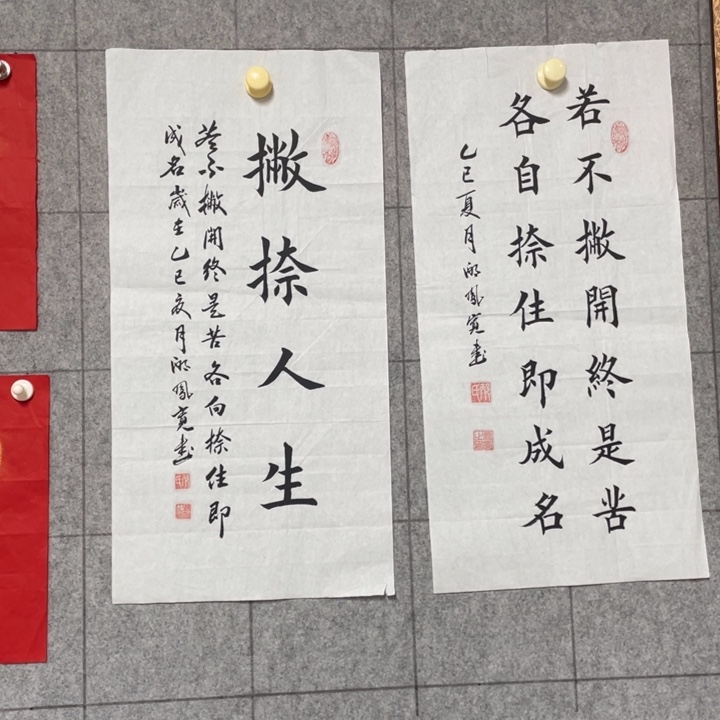 若不撇開終是苦
各自捺住即成名
乙巳夏月鳳寬書
撇捺人生
若不撇開終是苦各向捺住即
成名歲在乙巳夏月鳳寬書